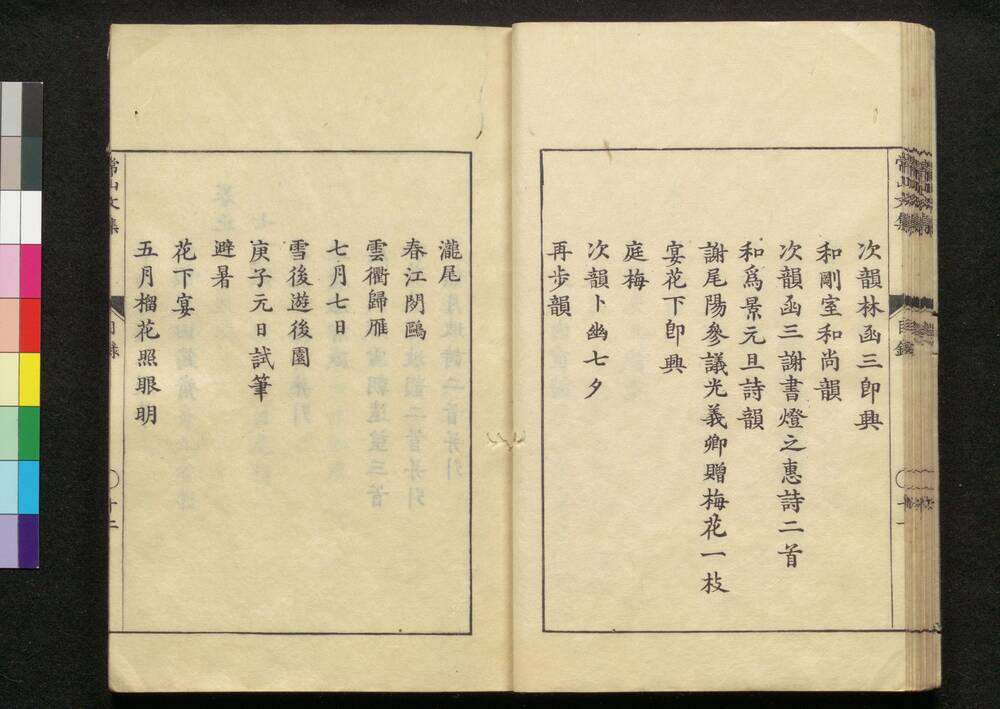 次韻林函三即興
和剛室和尚韻
次韻函三謝書燈之惠詩二首
和爲景元旦詩韻
謝尾陽參議光義卿贈梅花一枝
宴花下即興
庭梅
次韻卜幽七夕
再步韻
瀧尾
春江閒鷗
雲衢歸雁
七月七日
雪後遊後園
庚子元日試筆
避暑
花下宴
五月榴花照眼明
常山文集
目錄
十二